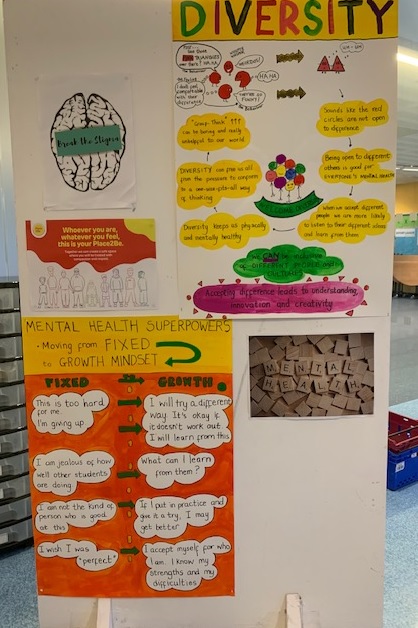 DIVERSITY
WEIRDOS!
HA HA
THEY'RE SO FUNNY!
"Group Think" ???
can be boring and really
unhelpful to our world
Sounds like the red
circles are not open
to difference
DIVERSITY can free us all
from the pressure to conform
to a one-size-fits-all way of
thinking
Being open to different
others is good for
EVERYONE'S MENTAL HEALTH
Diversity keeps us physically
and mentally healthy
When we accept different
people we are more likely
to listen to their different others
and learn from them
Accepting difference leads to understanding,
innovation and creativity
Break the Stigma
Whoever you are,
whatever you feel,
this is your Place2Be.
MENTAL HEALTH SUPERPOWERS
• Moving from FIXED
to GROWTH MINDSET
FIXED
GROWTH
This is too hard
for me.
I'm giving up.
I will try a different
way. It's okay if
it doesn't work out.
I will learn from this
I am jealous of how
well other students
are doing
What can I learn
from them?
I am not the kind of
person who is good
at this
If I put in practice and
give it a try, I may
get better
I wish I was
"perfect"
I accept myself for who
I am. I know my
strengths and my
difficulties
MENTAL
HEALTH